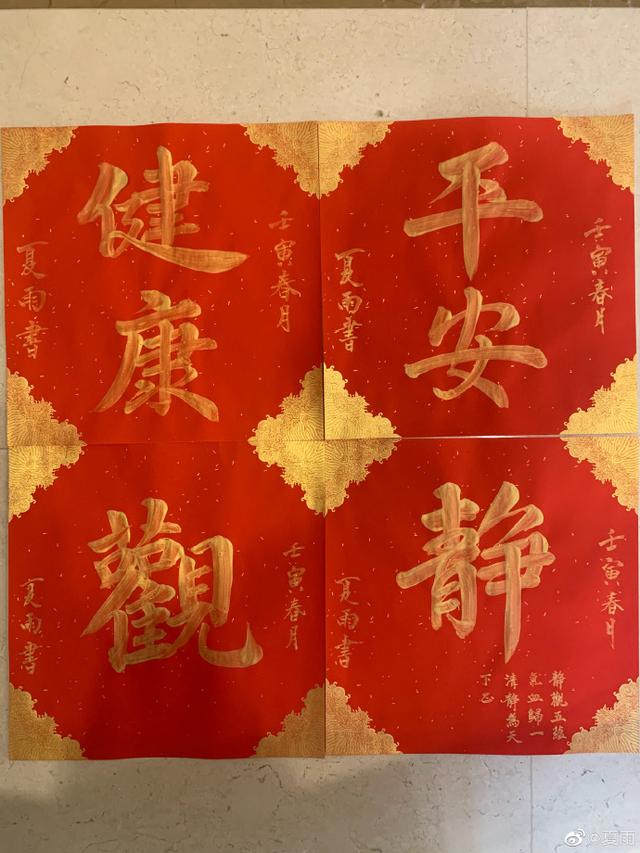 平安
壬寅春月
夏雨書
健康
壬寅春月
夏雨書
静
壬寅春月
夏雨書
靜觀五蕴
氣血歸一
清静為天
下正
觀
壬寅春月
夏雨書
@夏雨